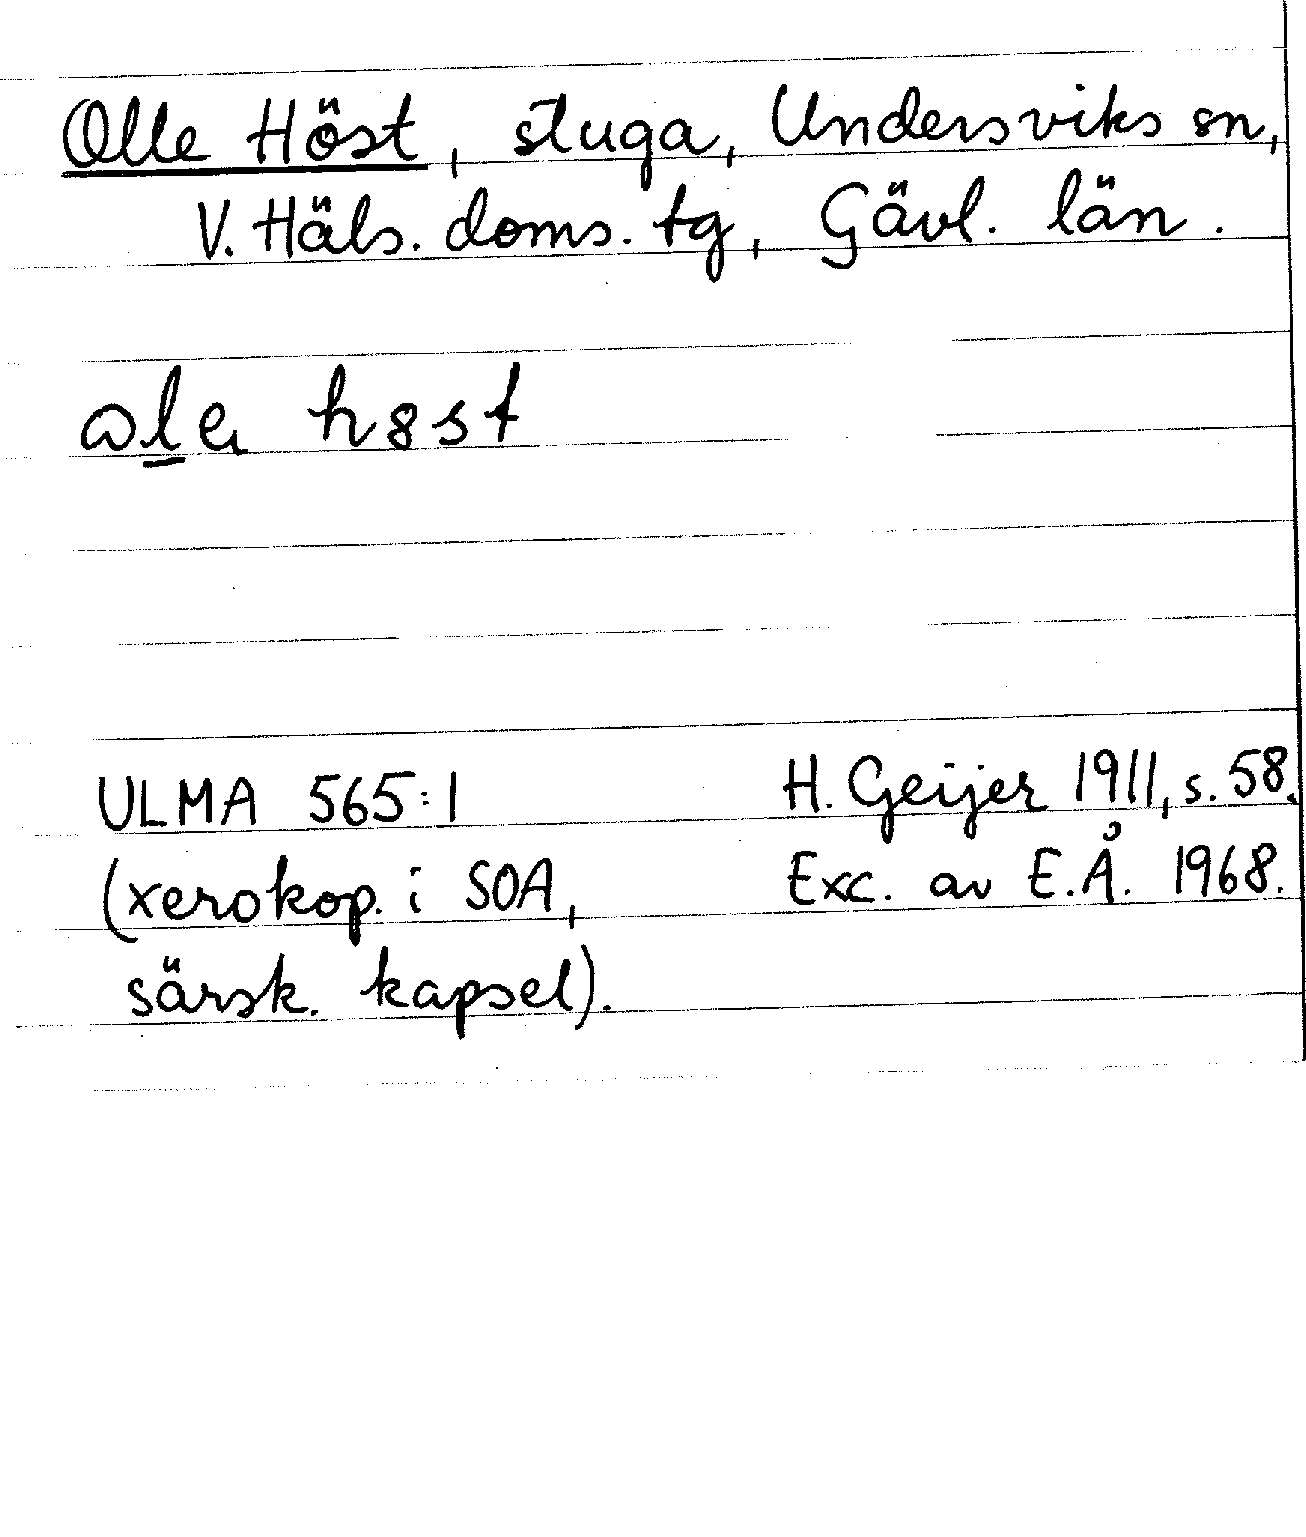 Olle Höst, stuga, Undersviks sn,
V. Häls. doms. tg, Gävl. län.
ɷl̲e h8st
ULMA 565:1 H. Geijer 1911, s. 58.
(xerokop. i SOA, Exc. av E.Å. 1968.
särsk. kapsel).